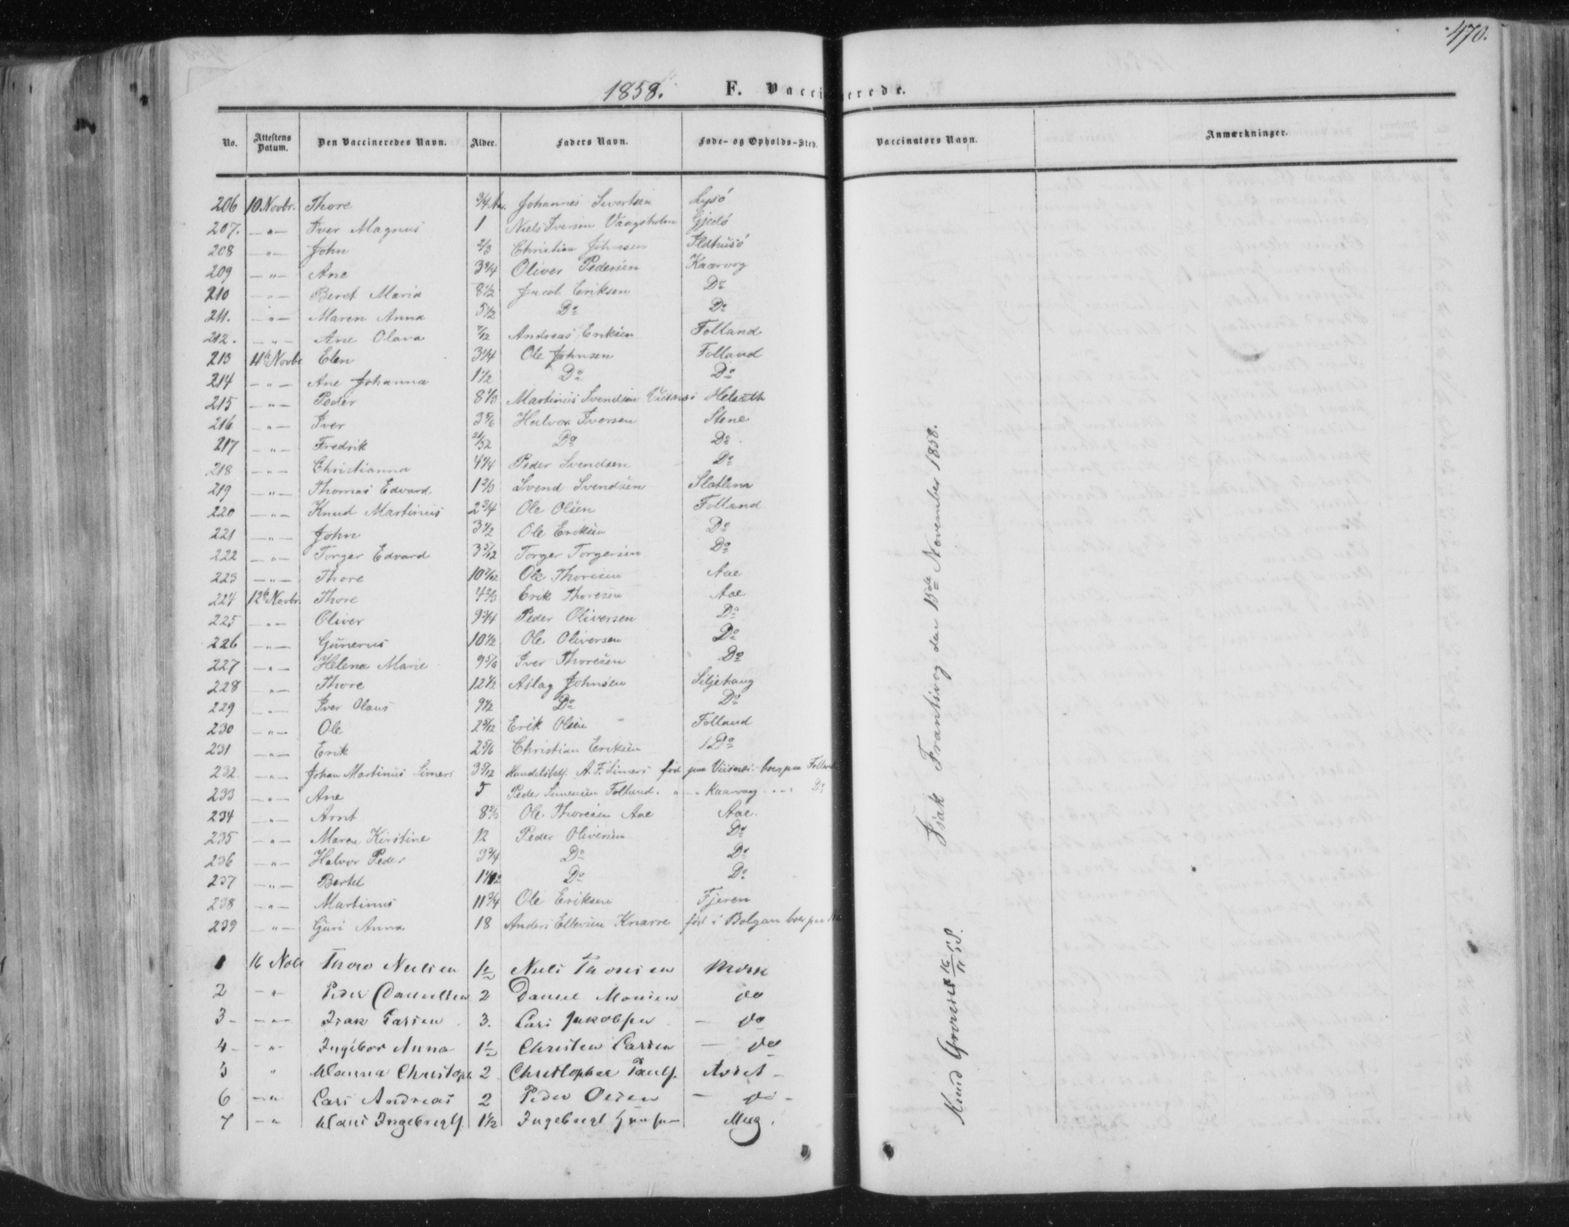 470.
1858. F. Vaccinerede.
No. Attestens Datum. Den Vaccineredes Navn. Alder. Faders Navn. Føde- og Opholds-Sted. Vaccinators Navn. Anmærkninger.
206 10 Novbr. Thore 3/4 Johannes Sivertsen Lysö
207. -"- Iver Magnus 1 Niels Iversen Vaagsholm Gjedö
208 -"- John 2/3 Christian Johnsen
209 -"- Ane 3 3/4 Oliver Pedersen Kaarvog
210 -"- Beret Maria 8 1/2 Jacob Eriksen Do
211. -"- Maren Anna 5 1/2 Do Do
212. -"- Ane Olava Andreas Eriksen Folland
213 11te Novbr Elen 3 1/4 Ole Johnsen Folland
214 -"- Ane Johanna 1 1/2 Do Do
215 -"- Peder Martinus Svendsen
216 -"- Iver Halvor Iversen Stene
217 -"- Fredrik Do Do
218 -"- Christianna 4 1/4 Peder Svendsen Do
219 -"- Thomas Edvard 1 2/3 Svend Svendsen Slatlem
220 -"- Knud Martinus 2 3/4 Ole Olsen Folland
221 -"- John 3 1/2 Ole Eriksen Do
222 -"- Torger Edvard 3 5/12 Torger Torgersen Do
223 -"- Thore Ole Thoresen Aae
224 12te Novbr. Thore 4 2/3 Erik Thoresen Aae
225 -"- Oliver 9 3/4 Peder Oliversen Do
226 -"- Gunerus 10 1/2 Ole Oliversen Do
227 -"- Helena Marie 9 5/6 Iver Thoresen Do
228 -"- Thore 12 1/2 Aslag Johnsen Siljehaug
229 -"- Iver Olaus 9 1/2 Do Do
230 -"- Ole Erik Olsen Folland
231 -"- Erik 2 5/6 Christian Eriksen Do
232 -"- Johan Martinus Handelsbetj. A. F. föd paa boer paa
233 -"- Ane 5 Peder Folland. Kaarvag Do
234 -"- Arnt 8 2/3 Ole Thoresen Aae Aae.
235 -"- Maren Kirstine 12 Peder Oliversen Do
236 -"- Halvor Peder Do Do
237 -"- Bertel Do Do
238 -"- Martinus 11 3/4 Ole Eriksen Fjeren
239 -"- Guri Anna 18 Anders Ellevsen Knarre föd i Bolgan boer paa
1 16 Nobr Thore Nielsen 1 1/2 Niels Thoresen
2 -"- Peder Danielsen 2 Daniel Monsen do
3- -"- Isak Larsen 3. Lars Jakobsen - do
4- -"- Ingebor Anna 1 1/2 Christen Larsen - do
5 " Christoph 2 Christopher Pauls.
6 -"- Lars Andreas 2 Peder Olsen - do -
7 -"- Ingebregts 1 1/2 Ingebregt
Isak Frantsvog den 15de November 1858.
Knud 16/11 58.